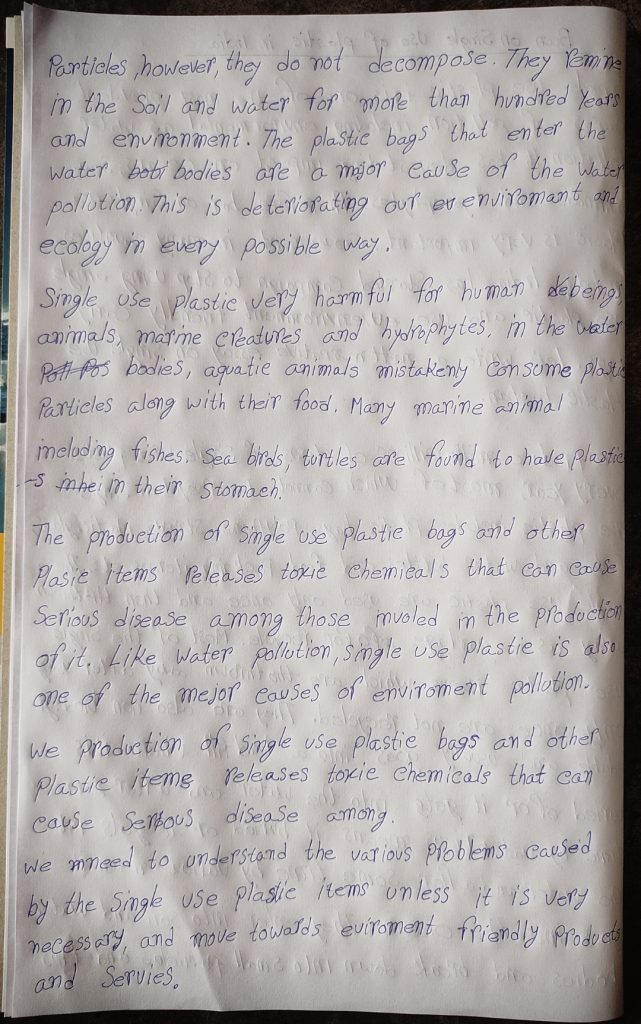 Particles, however, they do not decompose. They remine
in the Soil and water for more than hundred years
and environment. The plastic bags that enter the
water boti bodies are a major cause of the water
pollution. This is deteriorating our ev enviromant and
ecology in every possible way.
Single use plastic very harmful for human debeings,
animals, marine creatures and hydrophytes, in the water
bodies, aquatic animals mistakenly consume plastic
Particles along with their food. Many marine animal
including fishes. Sea birds, turtles are found to have plastic
-s inhei in their stomach.
The production of single use plastic bags and other
Plasic items releases toxic chemicals that can cause
Serious disease among those involed in the production
of it. Like water pollution, single use plastic is also
one of the mejor causes of enviroment pollution.
We production of single use plastic bags and other
Plastic iteme releases toxic chemicals that can
cause Serious disease among.
We mneed to understand the various problems caused
by the single use plastic items unless it is very
necessary, and move towards euiroment friendly products
and Servies.